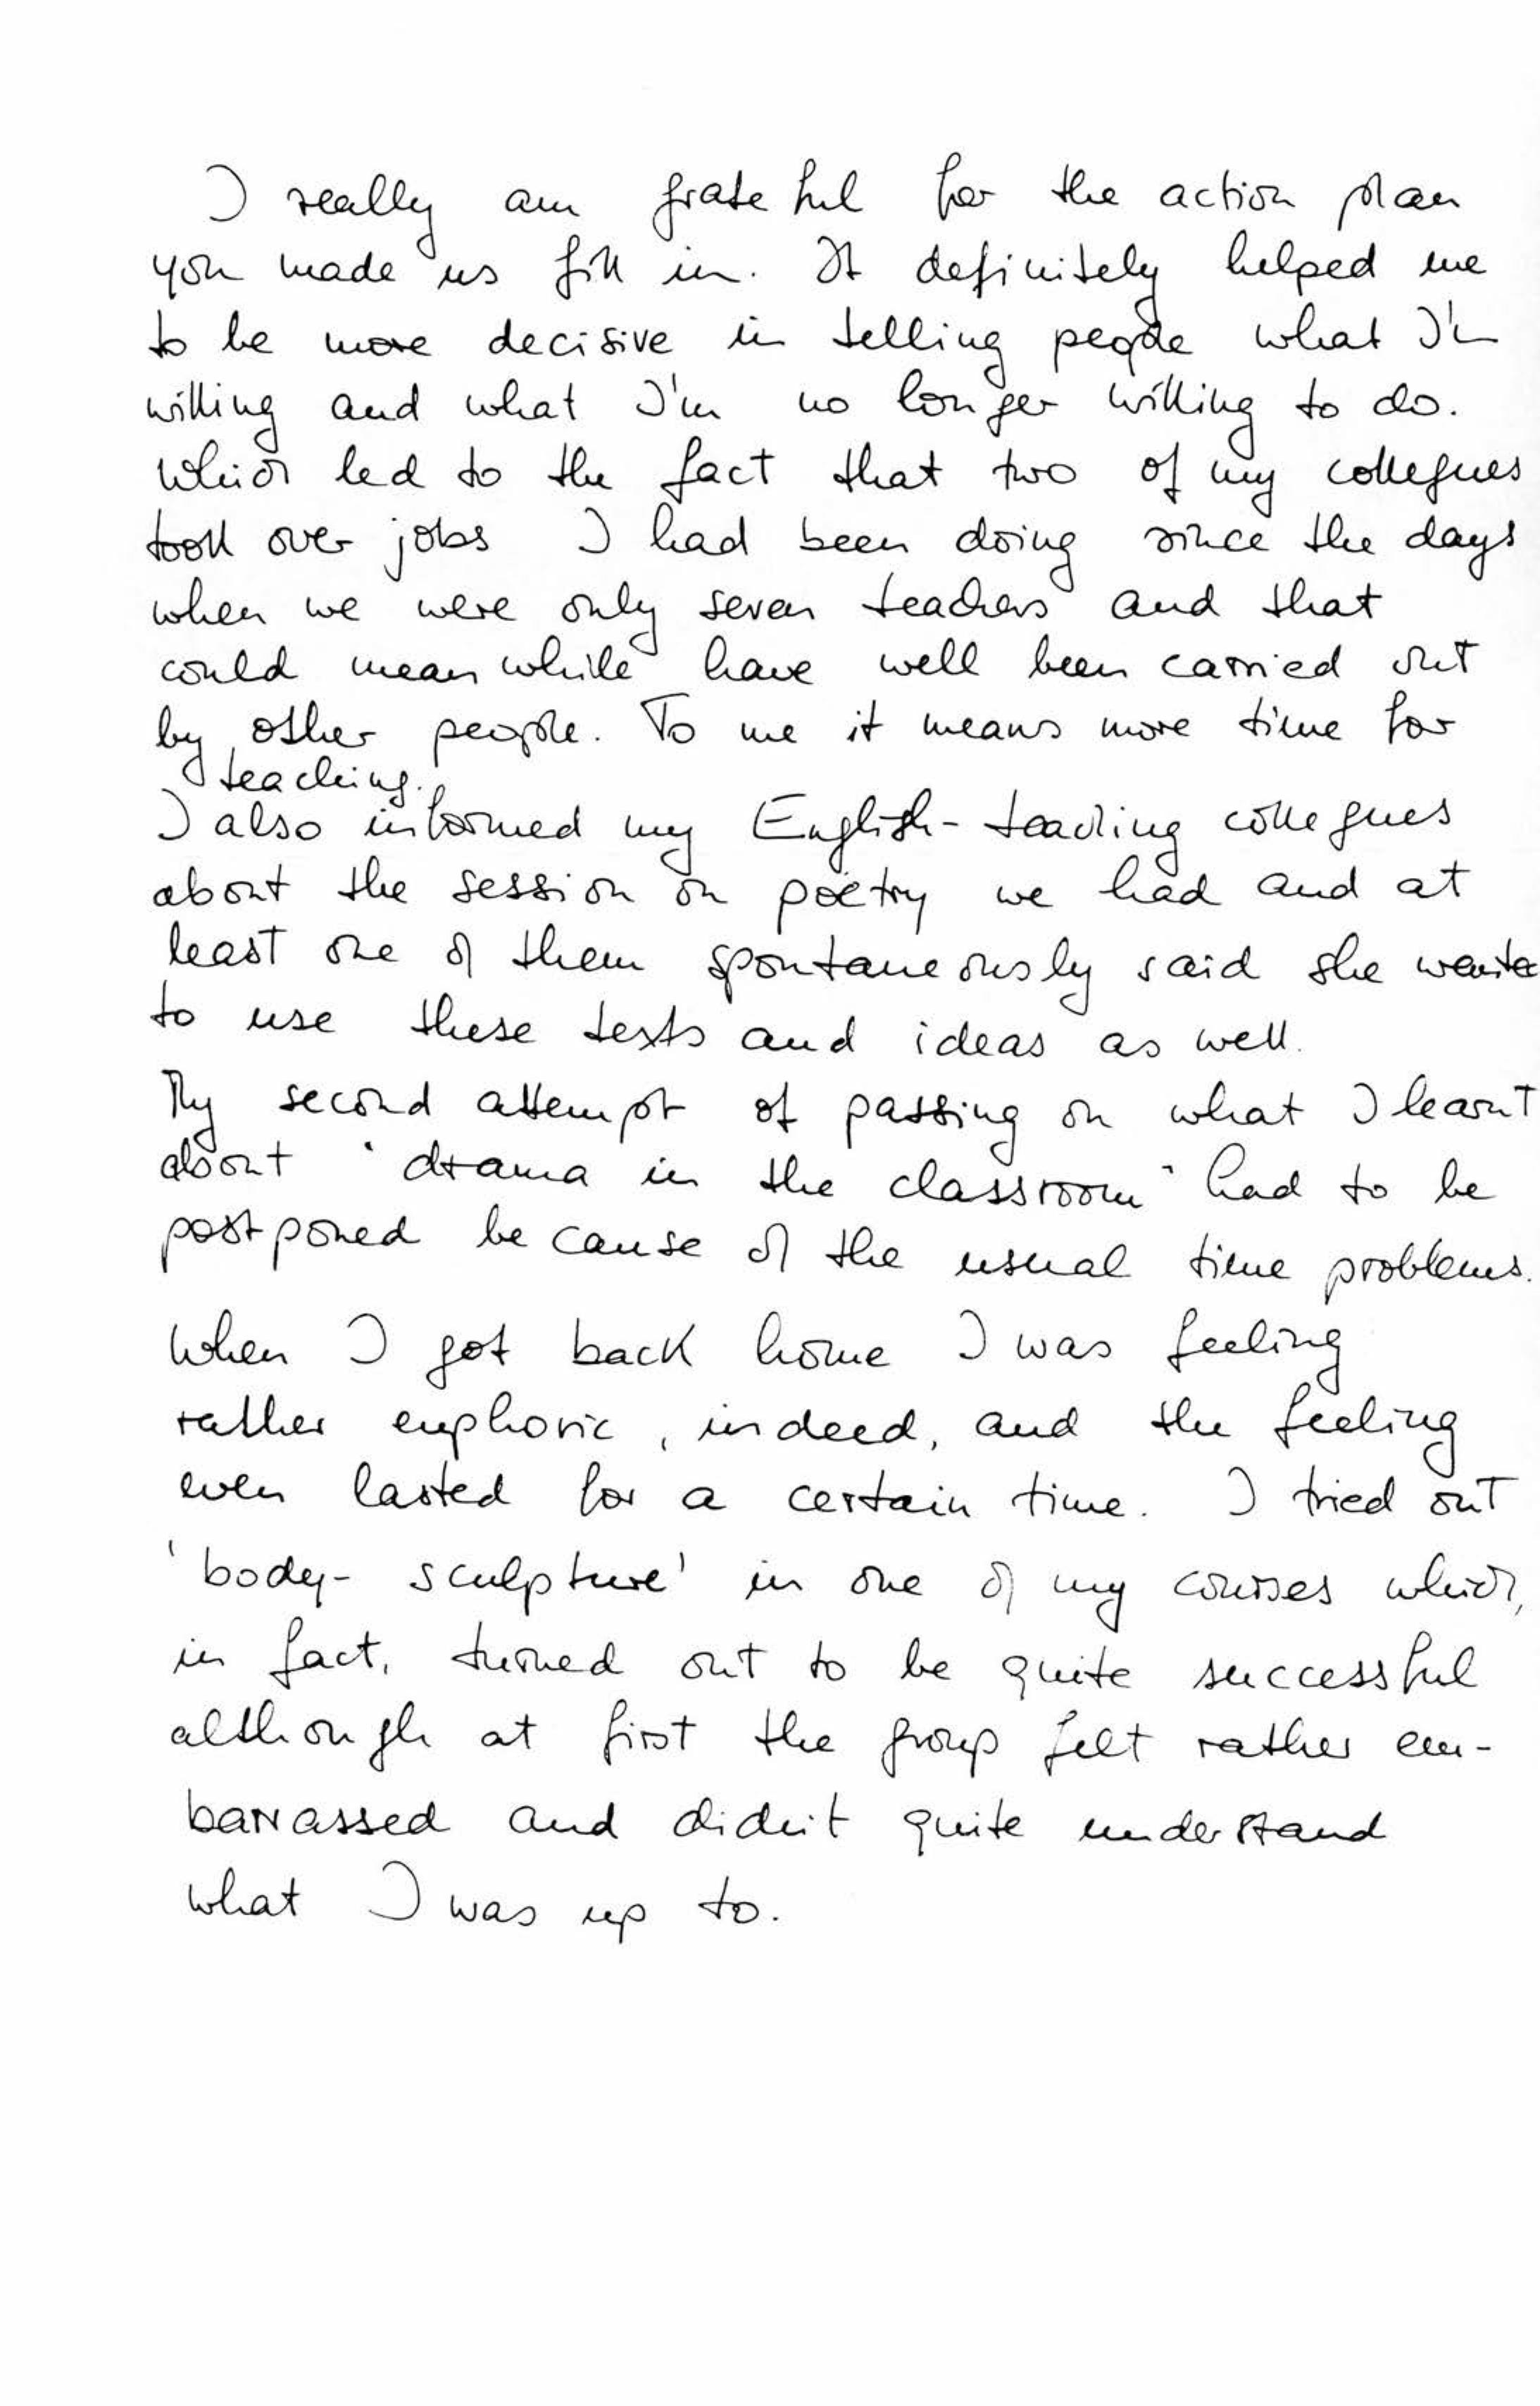 I really am grateful for the action plan
you made us fill in. It definitely helped me
to be more decisive in telling people what I'm
willing and what I'm no longer willing to do.
Which led to the fact that two of my collegues
took over jobs I had been doing since the days
when we were only seven teachers and that
could meanwhile have well been carried out
by other people. To me it means more time for
teaching.
I also informed my English-teaching collegues
about the session on poetry we had and at
least one of them spontaneously said she
to use these texts and ideas as well.
My second attempt of passing on what I learnt
about "drama in the classroom" had to be
postponed because of the usual time problems.
When I got back home I was feeling
rather euphoric, indeed, and the feeling
even lasted for a certain time. I tried out
'body-sculpture' in one of my courses which,
in fact, turned out to be quite successful
although at first the group felt rather em-
barrassed and didn't quite understand
what I was up to.